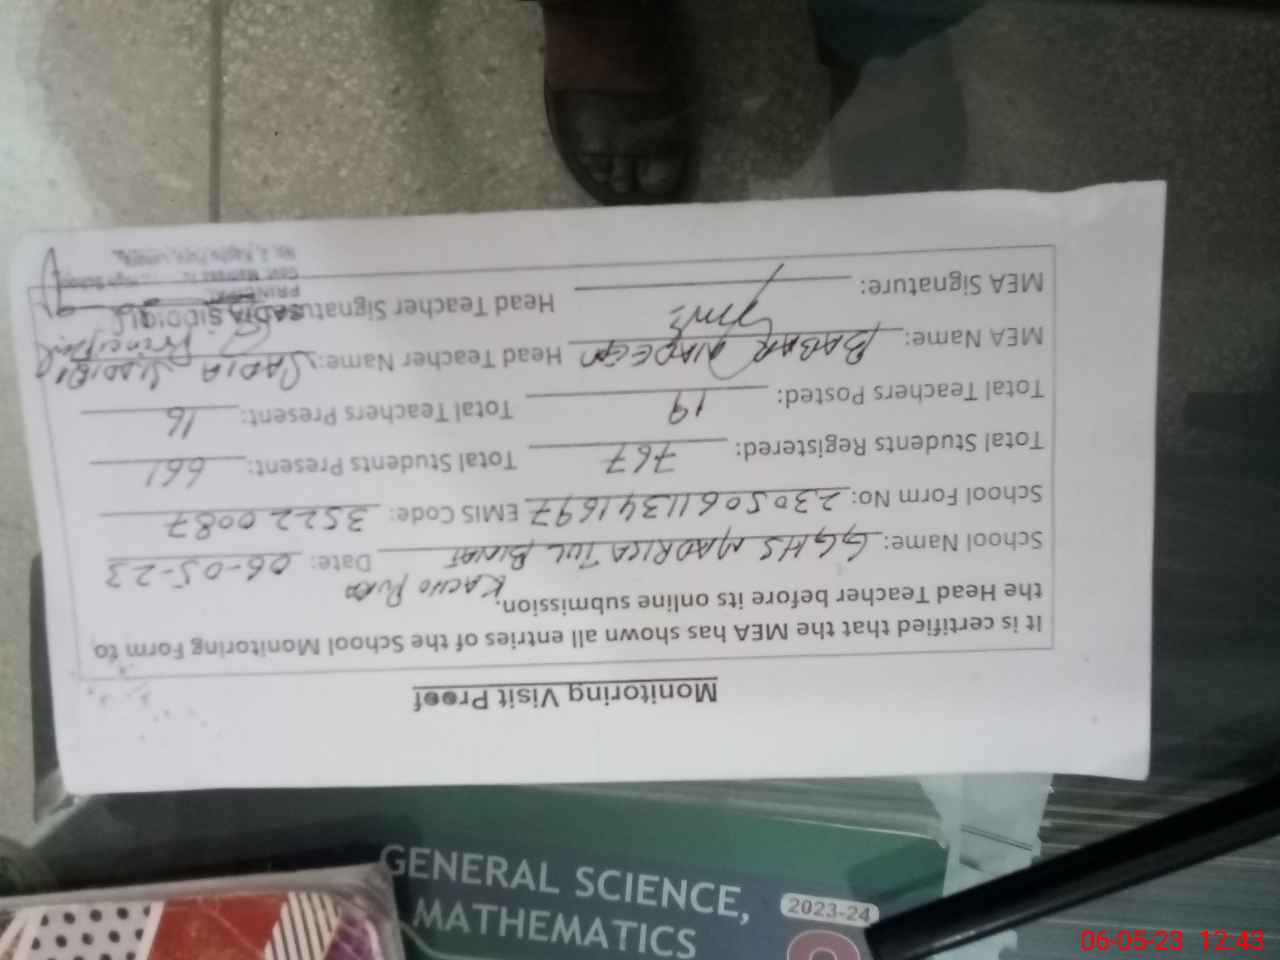 Monitoring Visit Proof
It is certified that the MEA has shown all entries of the School Monitoring Form to
the Head Teacher before its online submission.
School Name: GGHS MADRISA TUL BINAT KACHO PURA Date: 06-05-23
School Form No: 23050611341697 EMIS Code: 35220087
Total Students Registered: 767 Total Students Present: 661
Total Teachers Posted: 19 Total Teachers Present: 16
MEA Name: BABAR NADEEM Head Teacher Name: SADIA SIDDIQI Principal
MEA Signature: Head Teacher Signature
SADIA SIDDIQI
PRINCIPAL
GENERAL SCIENCE,
MATHEMATICS
2023-24
06-05-23 12:43